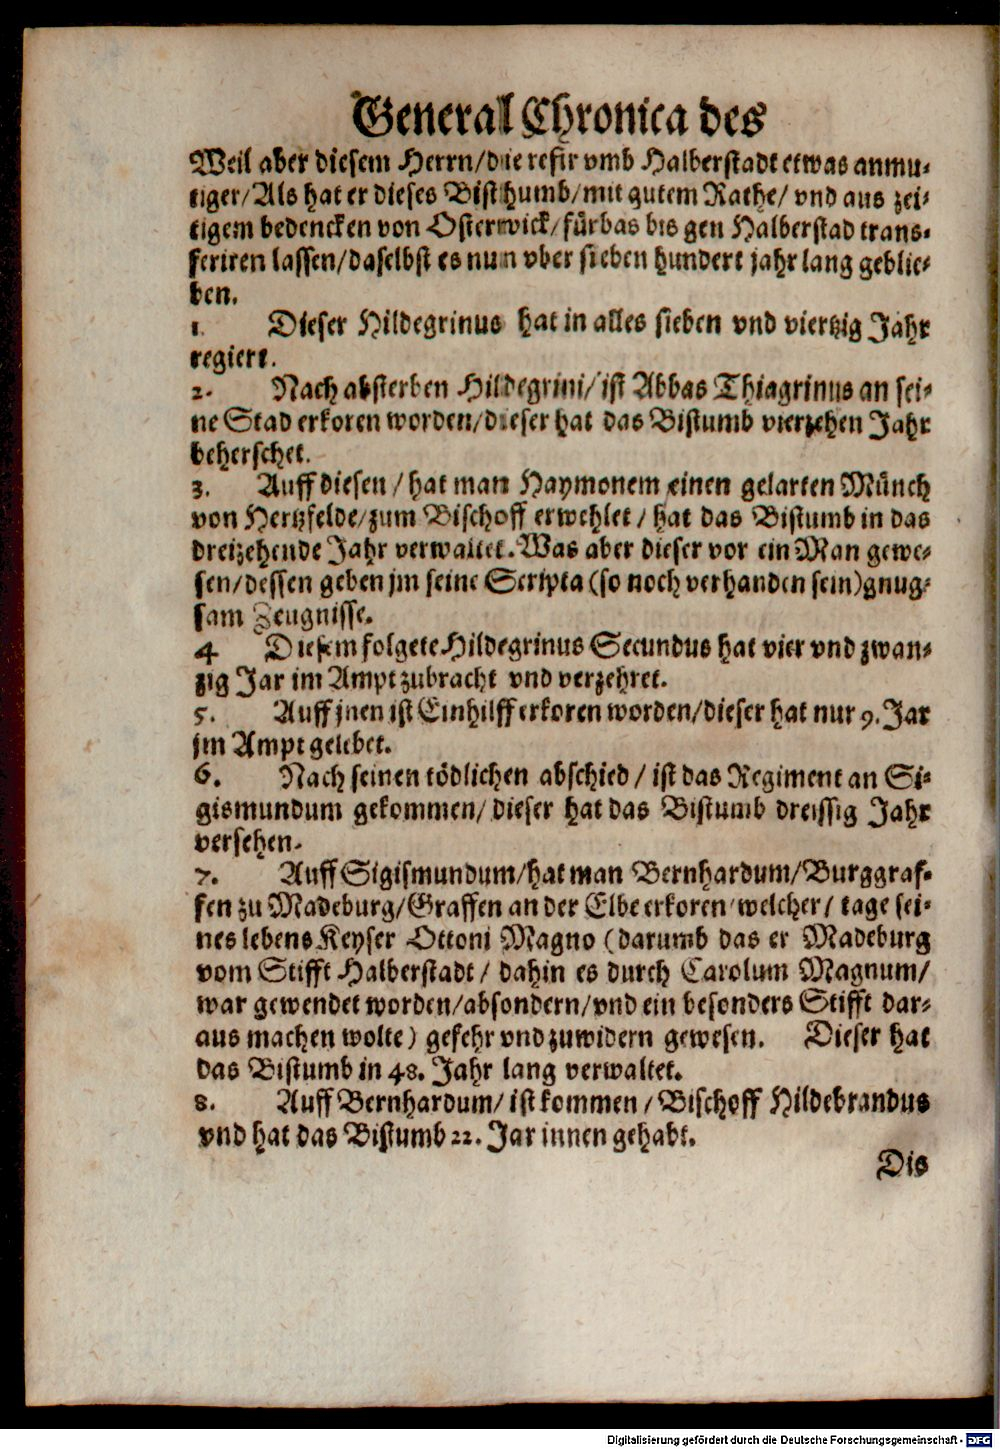 General Chronica des
Weil aber diesem Herrn/die refir vmb Halberstadt etwas anmu-
tiger/Als hat er dieses Bisthumb/mit gutem Rathe/ vnd aus zei-
tigem bedencken von Osterwick/ fürbas bis gen Halberstad trans-
feriren lassen/daselbst es nun vber sieben hundert jahr lang geblie-
ben.
1. Dieser Hildegrinus hat in alles sieben vnd viertzig Jahr
regiert.
2. Nach absterben Hildegrini/ ist Abbas Thiagrinus an sei-
ne Stad erkoren worden/dieser hat das Bistumb vierzehen Jahr
beherschet.
3. Auff diesen / hat man Haymonem einen gelarten Münch
von Hertzfelde/zum Bischoff erwehlet / hat das Bistumb in das
dreizehende Jahr verwaltet. Was aber dieser vor ein Man gewe-
sen/dessen geben jm seine Scripta (so noch verhanden sein) gnug-
sam Zeugnisse.
4 Diesem folgete Hildegrinus Secundus hat vier vnd zwan-
zig Jar im Ampt zubracht vnd verzehret.
5. Auff jnen ist Einhilff erkoren worden/dieser hat nur 9. Jar
jm Ampt gelebet.
6. Nach seinen tödlichen abschied / ist das Regiment an Si-
gismundum gekommen/ dieser hat das Bistumb dreissig Jahr
versehen.
7. Auff Sigismundum/hat man Bernhardum/Burggraf-
fen zu Madeburg/Graffen an der Elbe erkoren/welcher/ tage sei-
nes lebens Keyser Ottoni Magno (darumb das er Madeburg
vom Stifft Halberstadt / dahin es durch Carolum Magnum/
war gewendet worden/absondern/vnd ein besonders Stifft dar-
aus machen wolte) gefehr vnd zuwidern gewesen. Dieser hat
das Bistumb in 48. Jahr lang verwaltet.
8. Auff Bernhardum/ ist kommen / Bischoff Hildebrandus
vnd hat das Bistumb 22. Jar innen gehabt.
Dis
Digitalisierung gefördert durch die Deutsche Forschungsgemeinschaft - DFG